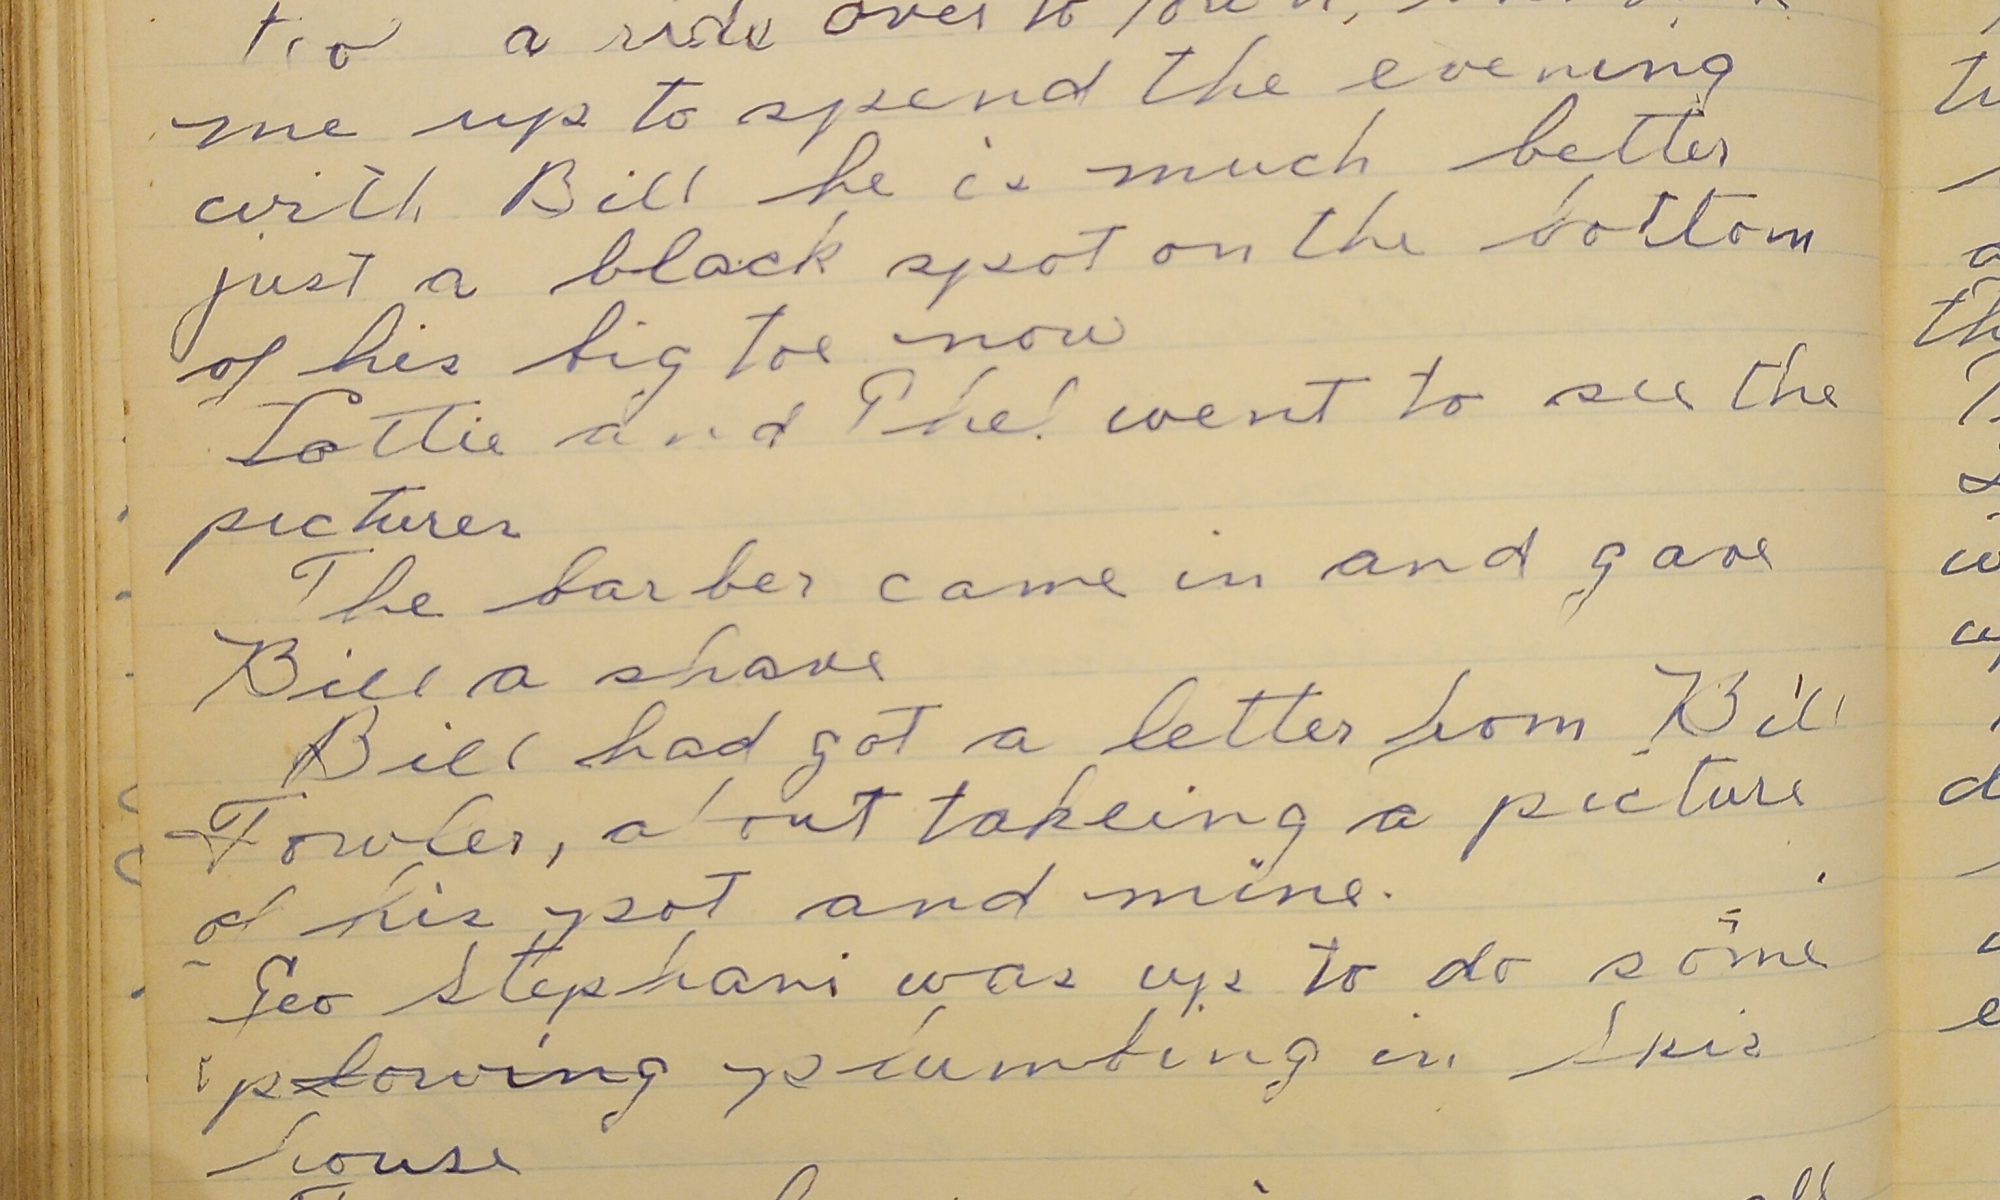 a ride over to
me up to spend the evening
with Bill he is much better
just a black spot on the bottom
of his big toe now
Lottie and Phel went to see the
pictures
The barber came in and gave
Bill a shave
Bill had got a letter from Bill
Fowler, about takeing a picture
of his spot and mine.
Geo Stephani was up to do some
plowing plumbing in Skis
house